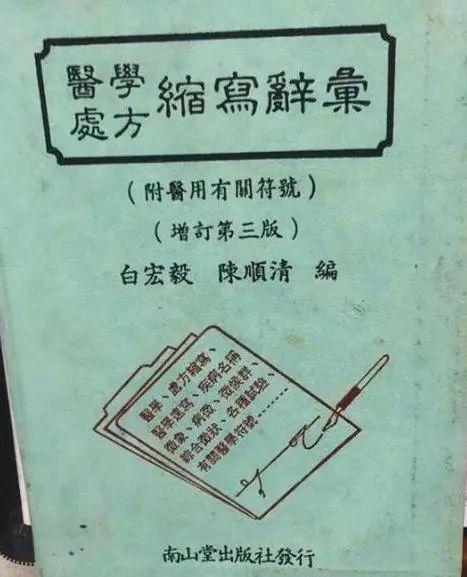 醫學
處方
縮寫辭彙
（附醫用有關符號）
（增訂第三版）
白宏毅 陳順清 編
醫學、處方縮寫、
醫學速寫、疾病名稱
徵象、病徵、徵候群、
綜合徵狀、各種試驗、
有關醫學符號……
南山堂出版社發行